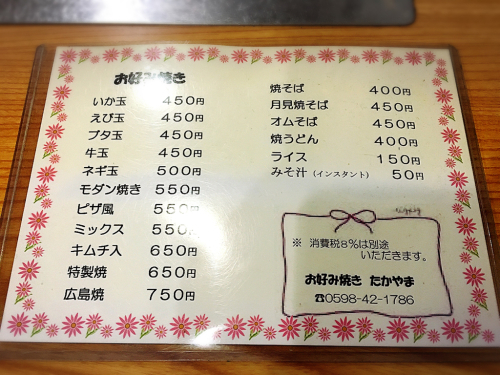 お好み焼き
いか玉 450円
えび玉 450円
ブタ玉 450円
牛玉 450円
ネギ玉 500円
モダン焼き 550円
ピザ風 550円
ミックス 550円
キムチ入 650円
特製焼 650円
広島焼 750円
焼そば 400円
月見焼そば 450円
オムそば 450円
焼うどん 400円
ライス 150円
みそ汁 (インスタント) 50円
※ 消費税8%は別途
いただきます。
お好み焼き たかやま
☎0598-42-1786